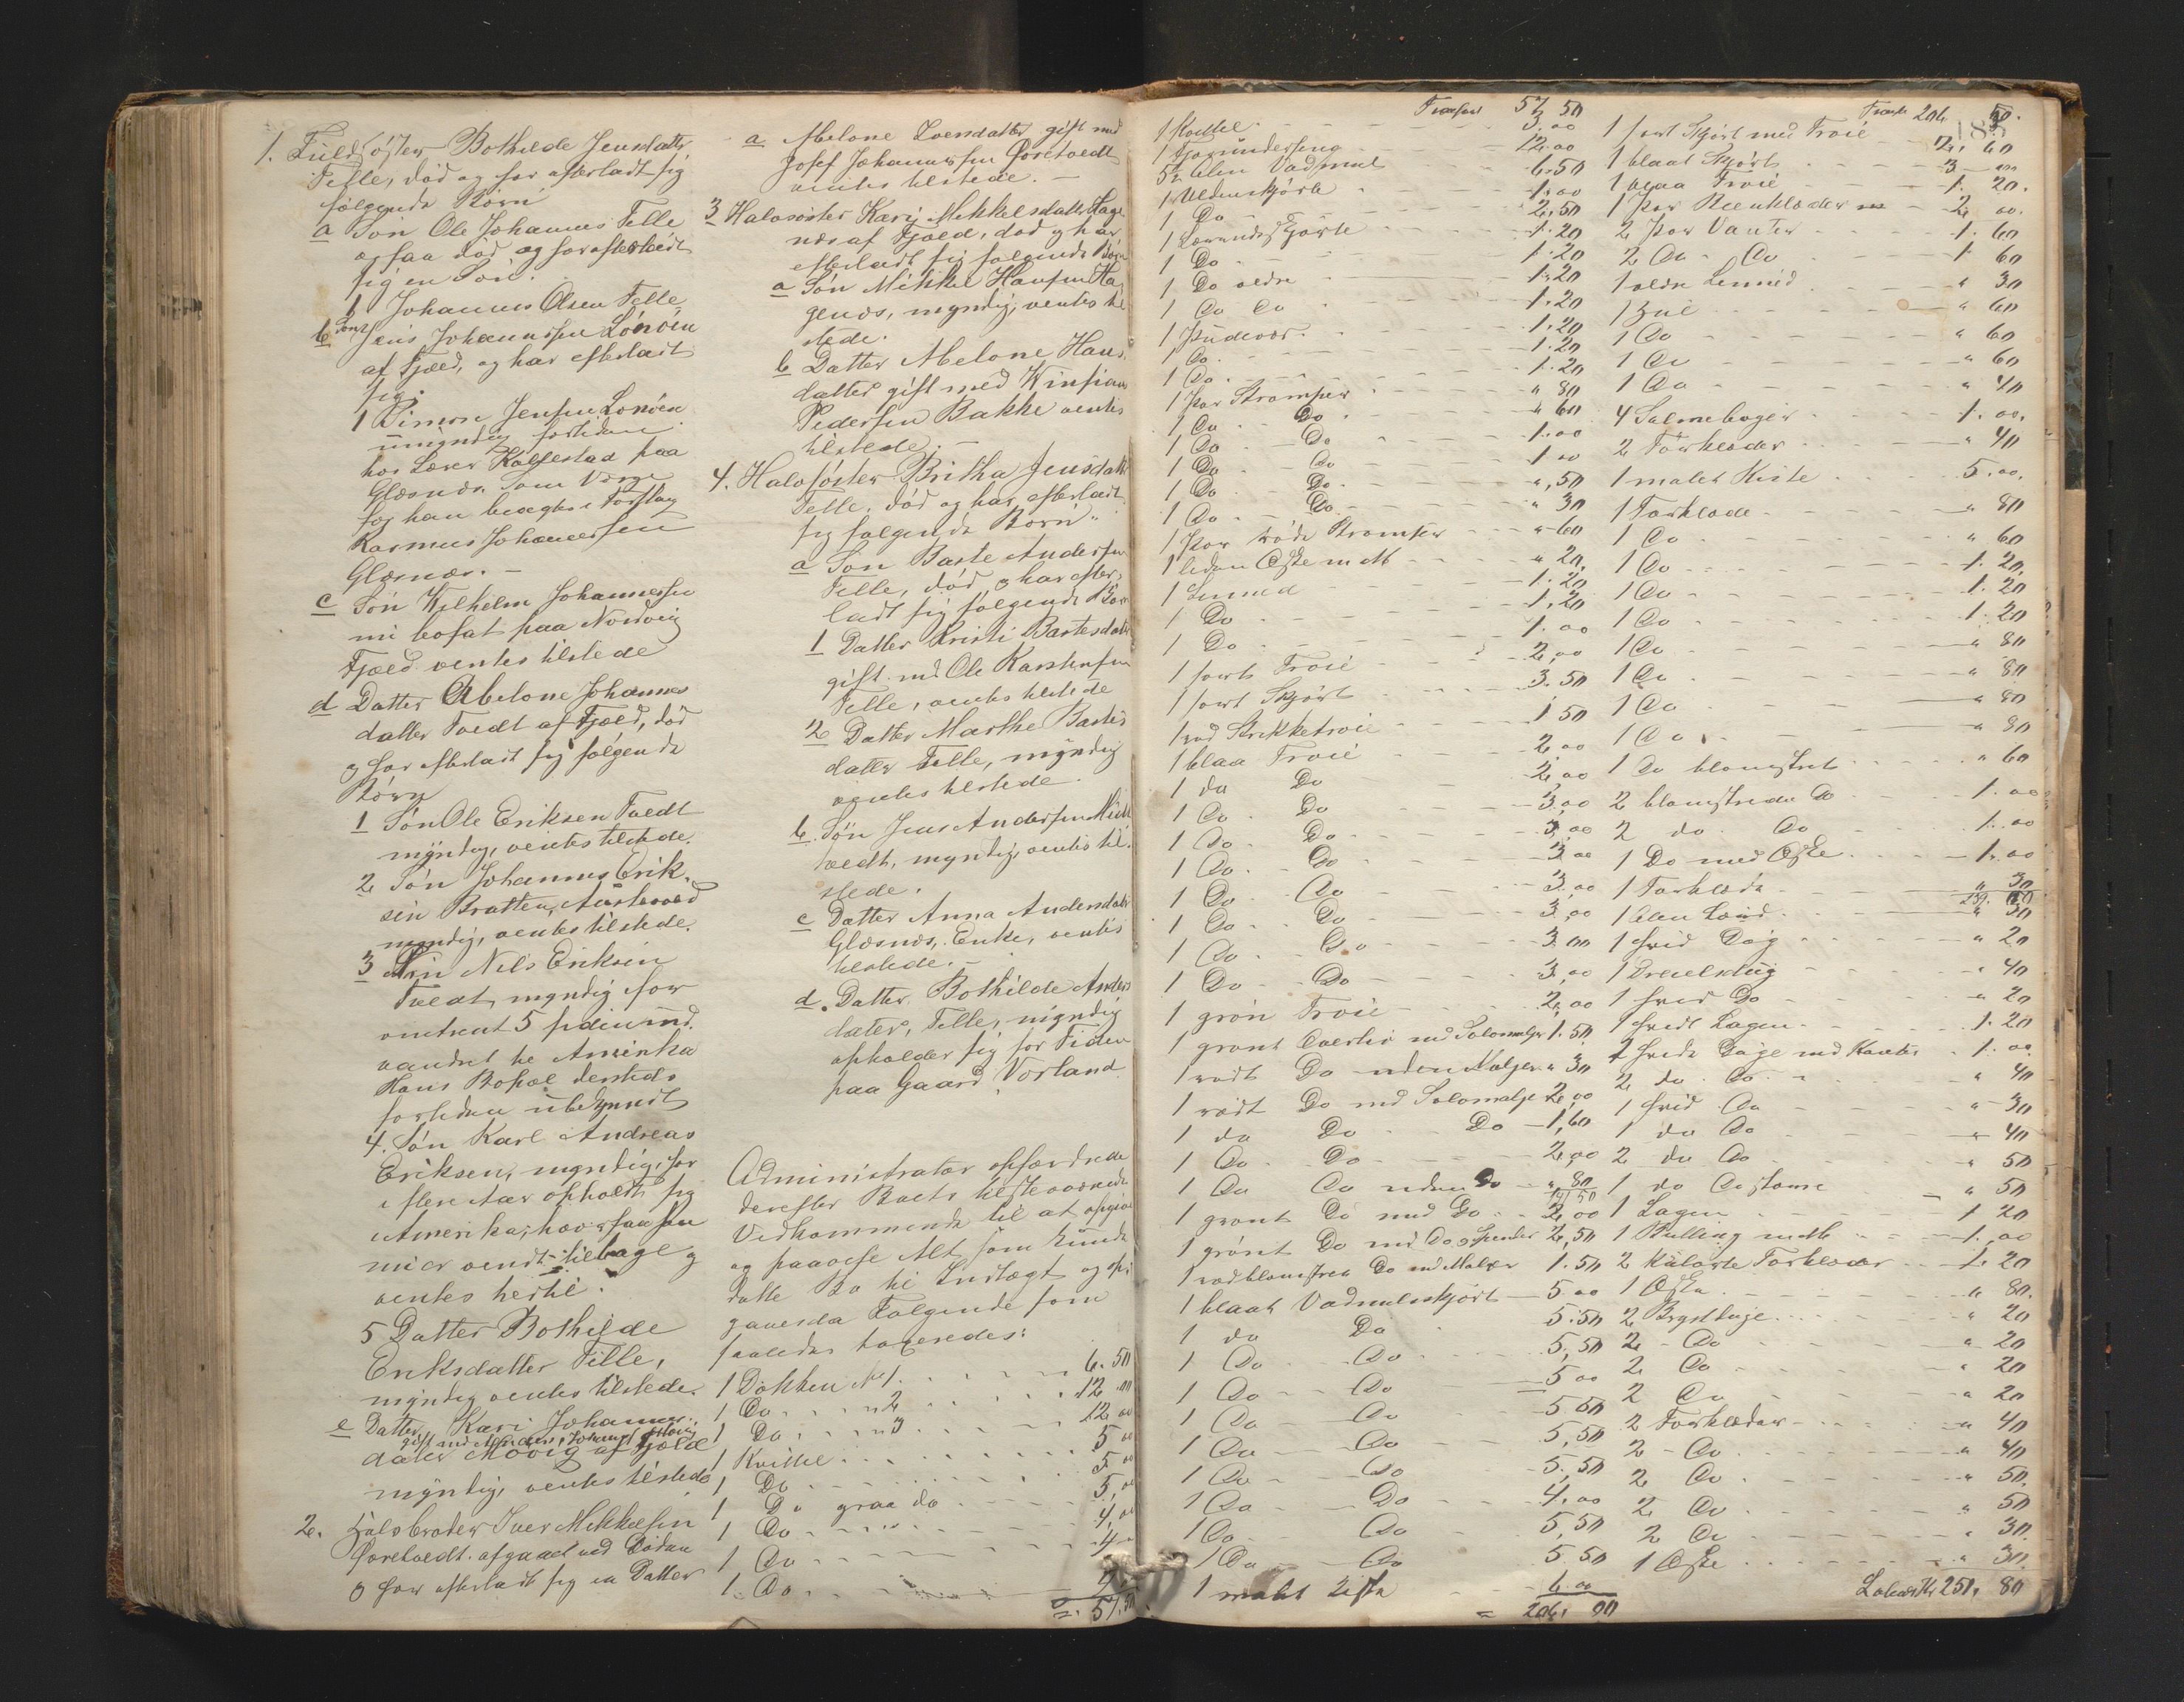 1. Fuldsøster Bothilde Jensdatter
Telle, død og har efterladt sig
følgende Børn
a Søn Ole Johannes Telle
ogsaa død og har efterladt
sig en Søn.
1 Johannes Olsen Telle
b Søn Jens Johannessen Lonøen
af Fjæld, og har efterladt
sig.
1 Simon Jensen Lonøen
umyndig fortiden
hos Lærer Kallestad paa
Glæsnæs. Som Værge
for han bragtes i Forslag
Rasmus Johannessen
Glæsnæs. -
c Søn Wilhelm Johannessen
nu bosat paa Nordvig
Fjæld ventes tilstede
d Datter Abelone Johannes
datter Tvedt af Fjæld, død
og har efterladt sig følgende
Børn
1 Søn Ole Eriksen Tvedt
myndig, ventes tilstede.
2 Søn Johannes Erik-
sen Bratten, Austevold
myndig, ventes tilstede.
3 Søn Nils Eriksen
Tvedt, myndig for
omtrent 5 siden ud
vandret til Amerika
Hans Bopæl dersteds
fortiden ubekjendt
4. Søn Karl Andreas
Eriksen, myndig, har
i flere Aar opholdt sig
i Amerika, hvorfra han
nu er vendt tilbage og
ventes hertil.
5 Datter Bothilde
Eriksdatter Telle,
myndig ventes tilstede.
e Datter Kari Johannes-
gift med Johannes
datter Møvig af Fjæld
myndig, ventes tilstede
2. Halvbroder Iver Mikkelsen
Føretvedt. afgaaet ved Døden
og har efterladt sig en Datter
a Abelone Iversdatter gift med
Josef Johannessen Føretvedt
ventes tilstede. -
3 Halvsøster Kari Mikkelsdatter Hage
næs af Fjæld, død og har
efterladt sig følgende Børn
a Søn Mikkel Hansen Ha
genæs, myndig, ventes til
stede.
b Datter Abelone Hans
datter gift med
Pedersen Bakke ventes
tilstede. -
4. Halvsøster Britha Jensdatter
Telle, død og har efterladt
sig følgende Børn
a Søn Baste Andersen
Telle, død, og har efter-
ladt sig følgende Børn
1 Datter Kristi Bastesdatter
gift med Ole Karstensen
Telle, ventes tilstede
2 Datter Marthe Bastes
datter Telle, myndig
ventes tilstede.
b. Søn Jens Andersen
tvedt, myndig, ventes til-
stede.
c Datter Anna Andersdatter
Glæsnæs, Enke, ventes
tilstede. -
d. Datter Bothilde Anders
datter, Telle, myndig
opholder sig for Tiden
paa Gaard Vorland
Administrator opfordrede
derefter Boets tilstedeværende
Vedkommende til at opgive
og paavise Alt, som kunde
dette Bo til Indtægt og
gaves da Følgende som
saaledes taxeredes:
1 Dökken No 1. 6. 50
1 Do " 2 12. 00
1 Do " 3 12 00
1 Kvittel 5 00
1 Do 5 00
1 Do graa do 5,00
1 Do 4,00
1 Do 4
1. Do
= 57,50
Transport 57 50
1 Kvittel 5.00
1 Fjærunderseng 12.00
5½ Alen Vadmel 6.50
1 Uldenskjørte 1.00
1 Do 2,50
1 Lærredsskjørte 1. 20
1 Do 1.20
1 Do ældre 1.20
1 Do Do 1.20
1 Pudevær 1.20
1 Do. 1.20
1 Do. 1.20
1 Par Strømper " 80
1 Do Do " 60
1 Do Do 1.00
1 Do Do 1 00
1 Do Do ",50
1 Do Do " 30
1 Par røde Strømper " 60
1 liden Æske m M " 20
1 Linned 1. 20
1 Do 1,20
1 Do 1. 00
1 sort Trøie 2,00
1 sort Skjørt 3.50
1 rød Strikketrøie 1 50
1 blaa Trøie 2,00
1 do Do 2,00
1 Do Do 3,00
1 Do Do 3,00
1 Do. Do 3 00
1 Do Do 3,00
1 Do Do 3,00
1 Do Do 3.00
1 Do Do 3,00
1 grøn Trøie 2,00
1 grønt Overliv med Sølvmaljer 1.50
1 rødt Do uden Maljer " 30
1 rødt Do med Sølvmalje 2,00
1 do Do Do 1,60
1 Do Do 2,00
1 Do Do uden Do ",80
1 grønt Do med Do 2,00
1 grønt Do med Do & Spender 2,50
1 rødblomstret Do med Maljer 1.50
1 blaat Vadmelsskjört 5.00
1 do Do 5.50
1 Do Do 5,50
1 Do Do 5 00
1 Do Do 5 50
1 Do Do 5,50
1 Do Do 5,50
1 Do Do 4.00
1 Do Do 5,50
1 Do Do 5.50
1 malet Kiste 6.00
= 206. 00
Transp 206 50.
1 sort Skjört med Trøie 7. 60
1 blaat Skjört 3 00
1 blaa Trøie 1. 20.
1 Par Beenklæder 2 00.
2 Par Vanter 1. 60
2 Do Do 1 60
1 ældre Linned " 30
1 Hue " 60
1 Do " 60
1 Do " 60
1 Do " 40
4 Salmebøger 1. 00.
2 Tørklæder " 40
1 malet Kiste 5.00.
1 Tørklæde " 80
1 Do " 60
1 Do 1. 20.
1 Do 1. 20
1 Do 1. 20
1 Do " 80
1 Do " 80
1 Do " 80
1 Do " 80
1 Do blomstret " 60
2 blomstrede Do 1. 00
2 do Do 1. 00
1 Do med Æske 1. 00
1 Tørklæde " 30
1 Alen Lærred " 30
1 hvid Dug " 20
1 Dreielsdug " 40
1 hvid Do " 20
1 hvidt Lagen 1. 20
2 hvide Duge med Kanter 1. 00
2 do Do " 40
1 hvid Do " 30
1 do Do " 40
2 do Do " 50
1 do Do større " 50
1 Lagen 1 20
1 Rulling m M 1. 00
2 kulørte Tørklæder 1. 20
1 Æske " 80.
2 Brystduge " 20
2 Do " 20
2 Do " 20
2 Do " 20
2 Tørklæder " 40
2 Do " 40
2 Do " 50.
2 Do " 50
2 Do " 30
1 Æske " 30.
Kr 251. 80